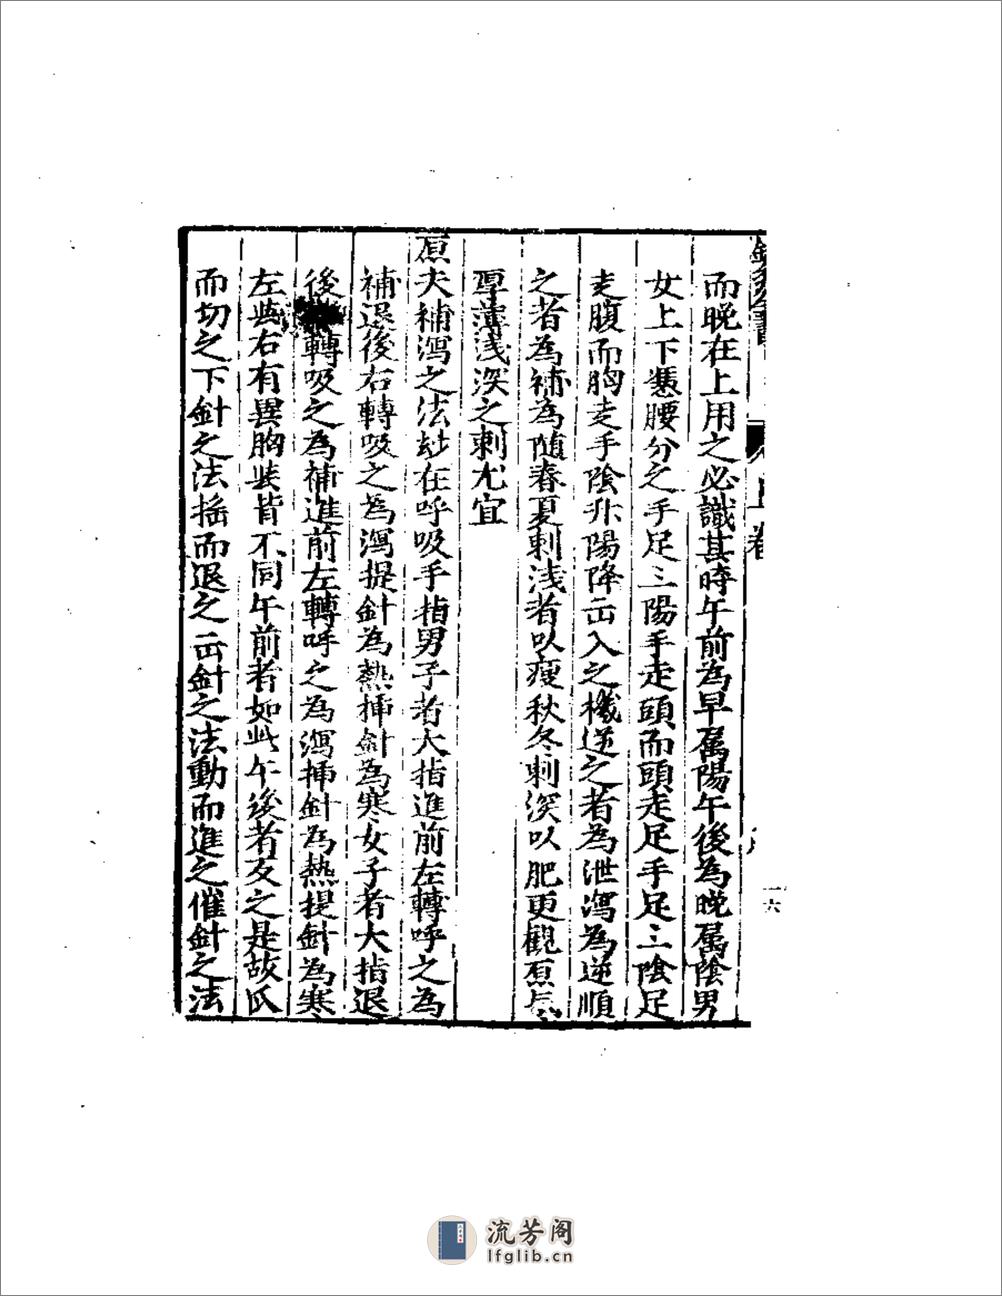 而晚在上用之必識其時午前為早属陽午後為晚属陰男
女上下凴腰分之手足三陽手走頭而頭走足手足三陰足
走腹而胸走手陰升陽降出入之機逆之者為泄瀉為逆順
之者為補為随春夏刺浅者以瘦秋冬刺深以肥更觀原氣
厚薄浅深之刺尤宜
原夫補瀉之法玅在呼吸手指男子者大指進前左轉呼之為
補退後右轉吸之為瀉提針為熱揷針為寒女子者大指退
後轉吸之為補進前左轉呼之為瀉揷針為熱提針為寒
左與右有異胸背皆不同午前者如此午後者反之是故爪
而切之下針之法揺而退之出針之法動而進之催針之法
上卷
一六
流芳阁
lfglib.cn